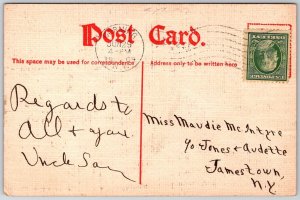 Post Card.
This space may be used for correspondence
Address only to be written here
Regards to
All & you.
Uncle Sam
Miss Maudie McIntyre
c/o Jones & Audette
Jamestown,
N.Y.